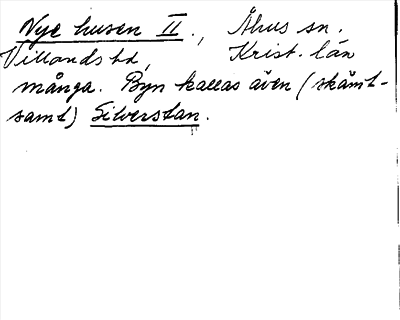 Nye husen II., Åhus sn.
Villands hd, Krist. län
många. Byn kallas även (skämt-
samt) Silverstan.